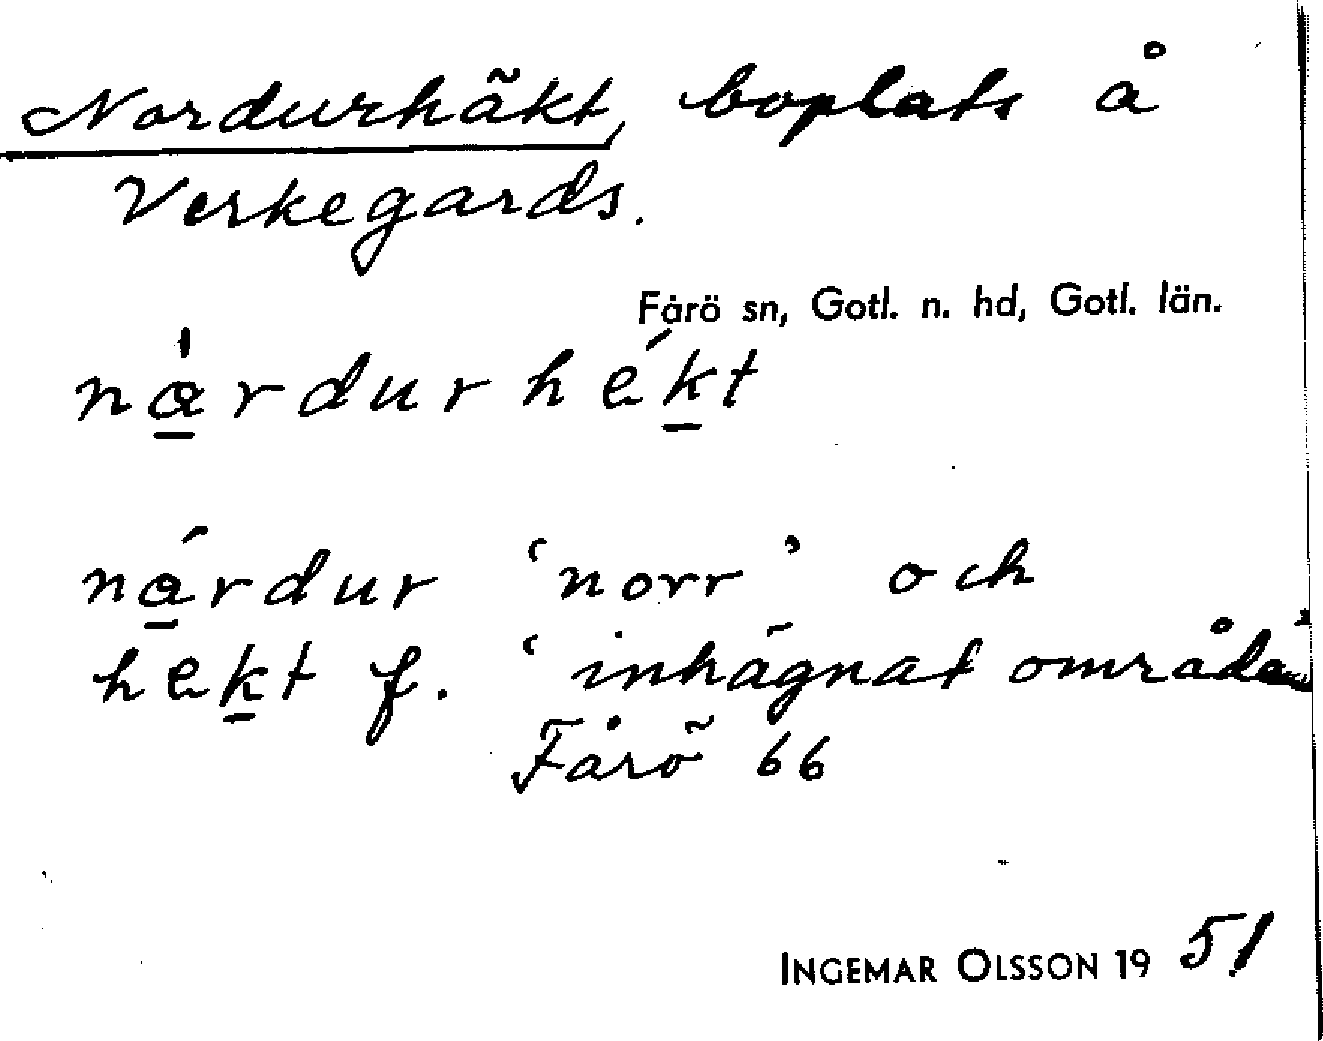 Nordurhäkt, boplats å
Verkegards.
Fårö sn, Gotl. n. hd, Gotl. län.
nàrdurhékt
nárdur 'norr' och
hekt f. 'inhägnat område'
Fårö 66
INGEMAR OLSSON 19 51